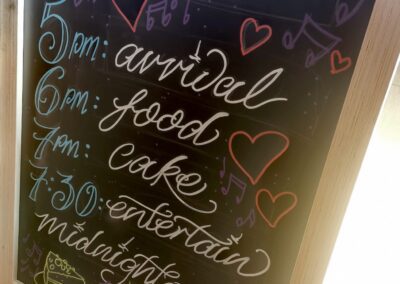 5pm: arrival
6pm: food
7pm: cake
7:30: entertain
midnight